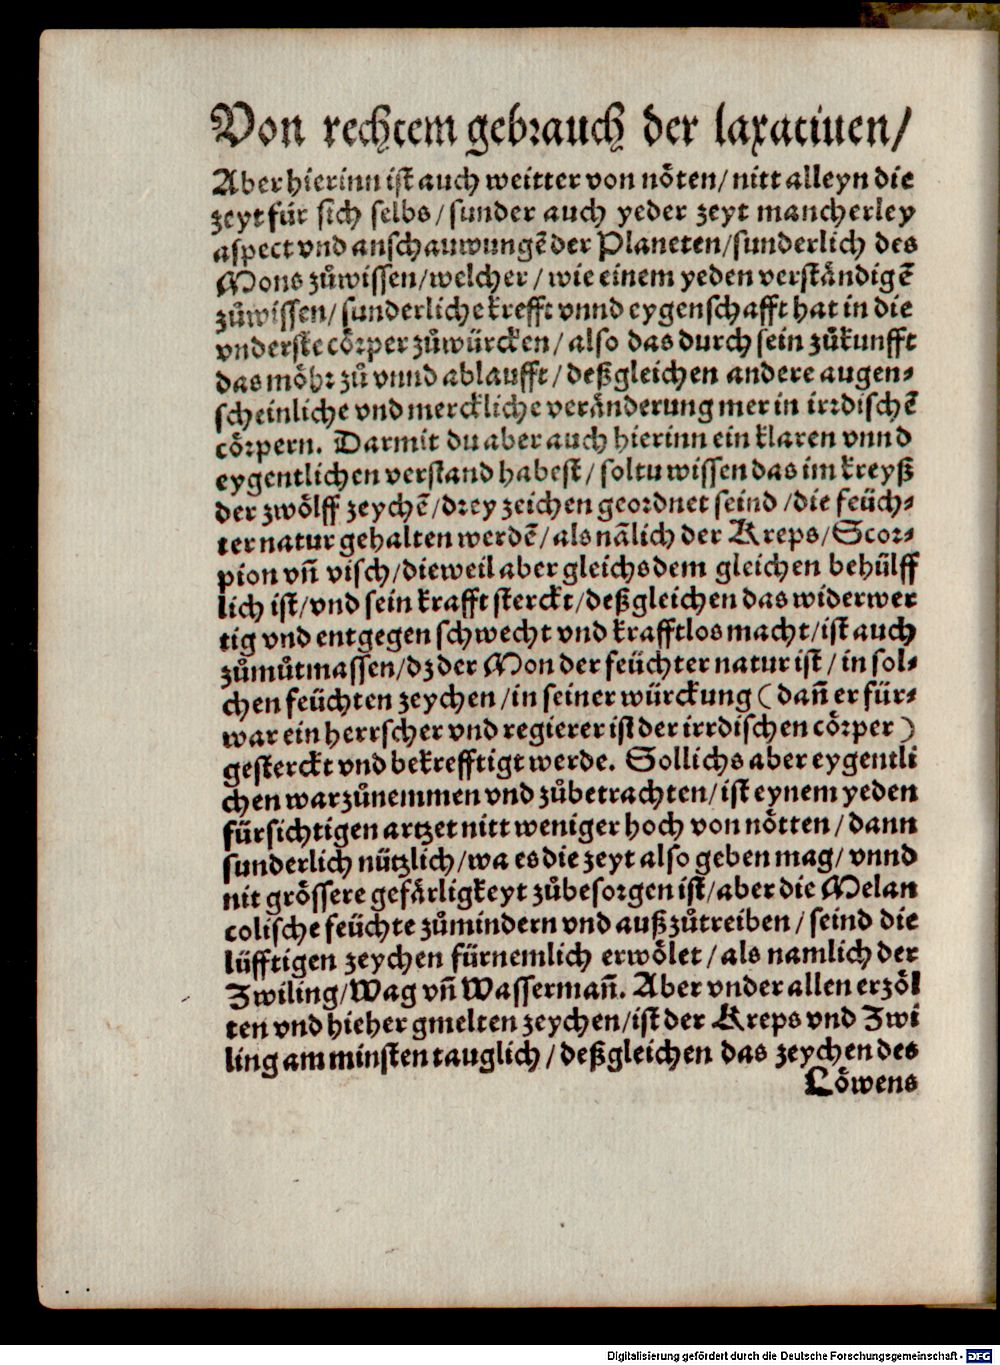 Von rechtem gebrauch der laxatiuen/
Aber hierinn ist auch weitter von nöten/ nitt alleyn die
zeyt für sich selbs/ sunder auch yeder zeyt mancherley
aspect vnd anschauwungē der Planeten/sunderlich des
Mons zůwissen/welcher/ wie einem yeden verständigē
zůwissen/ sunderliche krefft vnnd eygenschafft hat in die
vnderste cörper zůwürcken/ also das durch sein zůkunfft
das möhr zů vnnd ablaufft/ deßgleichen andere augen⸗
scheinliche vnd merckliche veränderung mer in irrdischē
cörpern. Darmit du aber auch hierinn ein klaren vnnd
eygentlichen verstand habest/ soltu wissen das im kreyß
der zwölff zeychē/drey zeichen geordnet seind /die feüch⸗
ter natur gehalten werdē/als nãlich der Kreps/Scor⸗
pion vñ visch/dieweil aber gleichs dem gleichen behülff
lich ist/vnd sein krafft sterckt/deßgleichen das widerwer
tig vnd entgegen schwecht vnd krafftlos macht/ist auch
zůmůtmassen/dz der Mon der feüchter natur ist/ in sol⸗
chen feüchten zeychen/in seiner würckung (dañ er für⸗
war ein herrscher vnd regierer ist der irrdischen cörper)
gesterckt vnd bekrefftigt werde. Sollichs aber eygentli
chen warzůnemmen vnd zůbetrachten/ist eynem yeden
fürsichtigen artzet nitt weniger hoch von nötten/ dann
sunderlich nützlich/wa es die zeyt also geben mag/ vnnd
nit grössere gefärligkeyt zůbesorgen ist/aber die Melan
colische feüchte zůmindern vnd außzůtreiben/ seind die
lüfftigen zeychen fürnemlich erwölet/ als namlich der
Zwiling/Wag vñ Wassermañ. Aber vnder allen erzöl
ten vnd hieher gmelten zeychen/ist der Kreps vnd Zwi
ling am minsten tauglich/ deßgleichen das zeychen des
Löwens
Digitalisierung gefördert durch die Deutsche Forschungsgemeinschaft - DFG